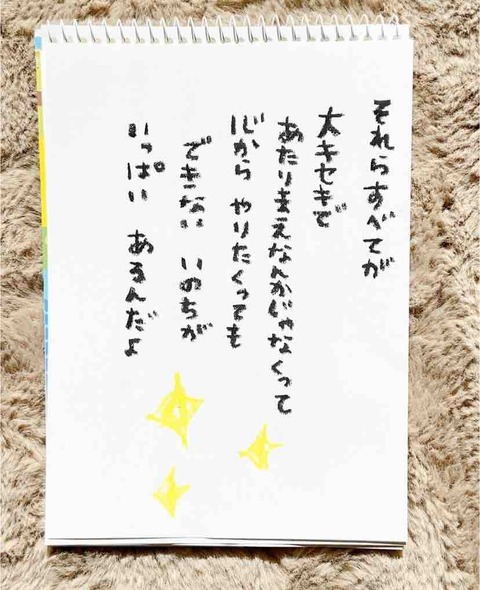 それらすべてが
大キセキで
あたりまえなんかじゃなくって
心から やりたくっても
できない いのちが
いっぱい あるんだよ